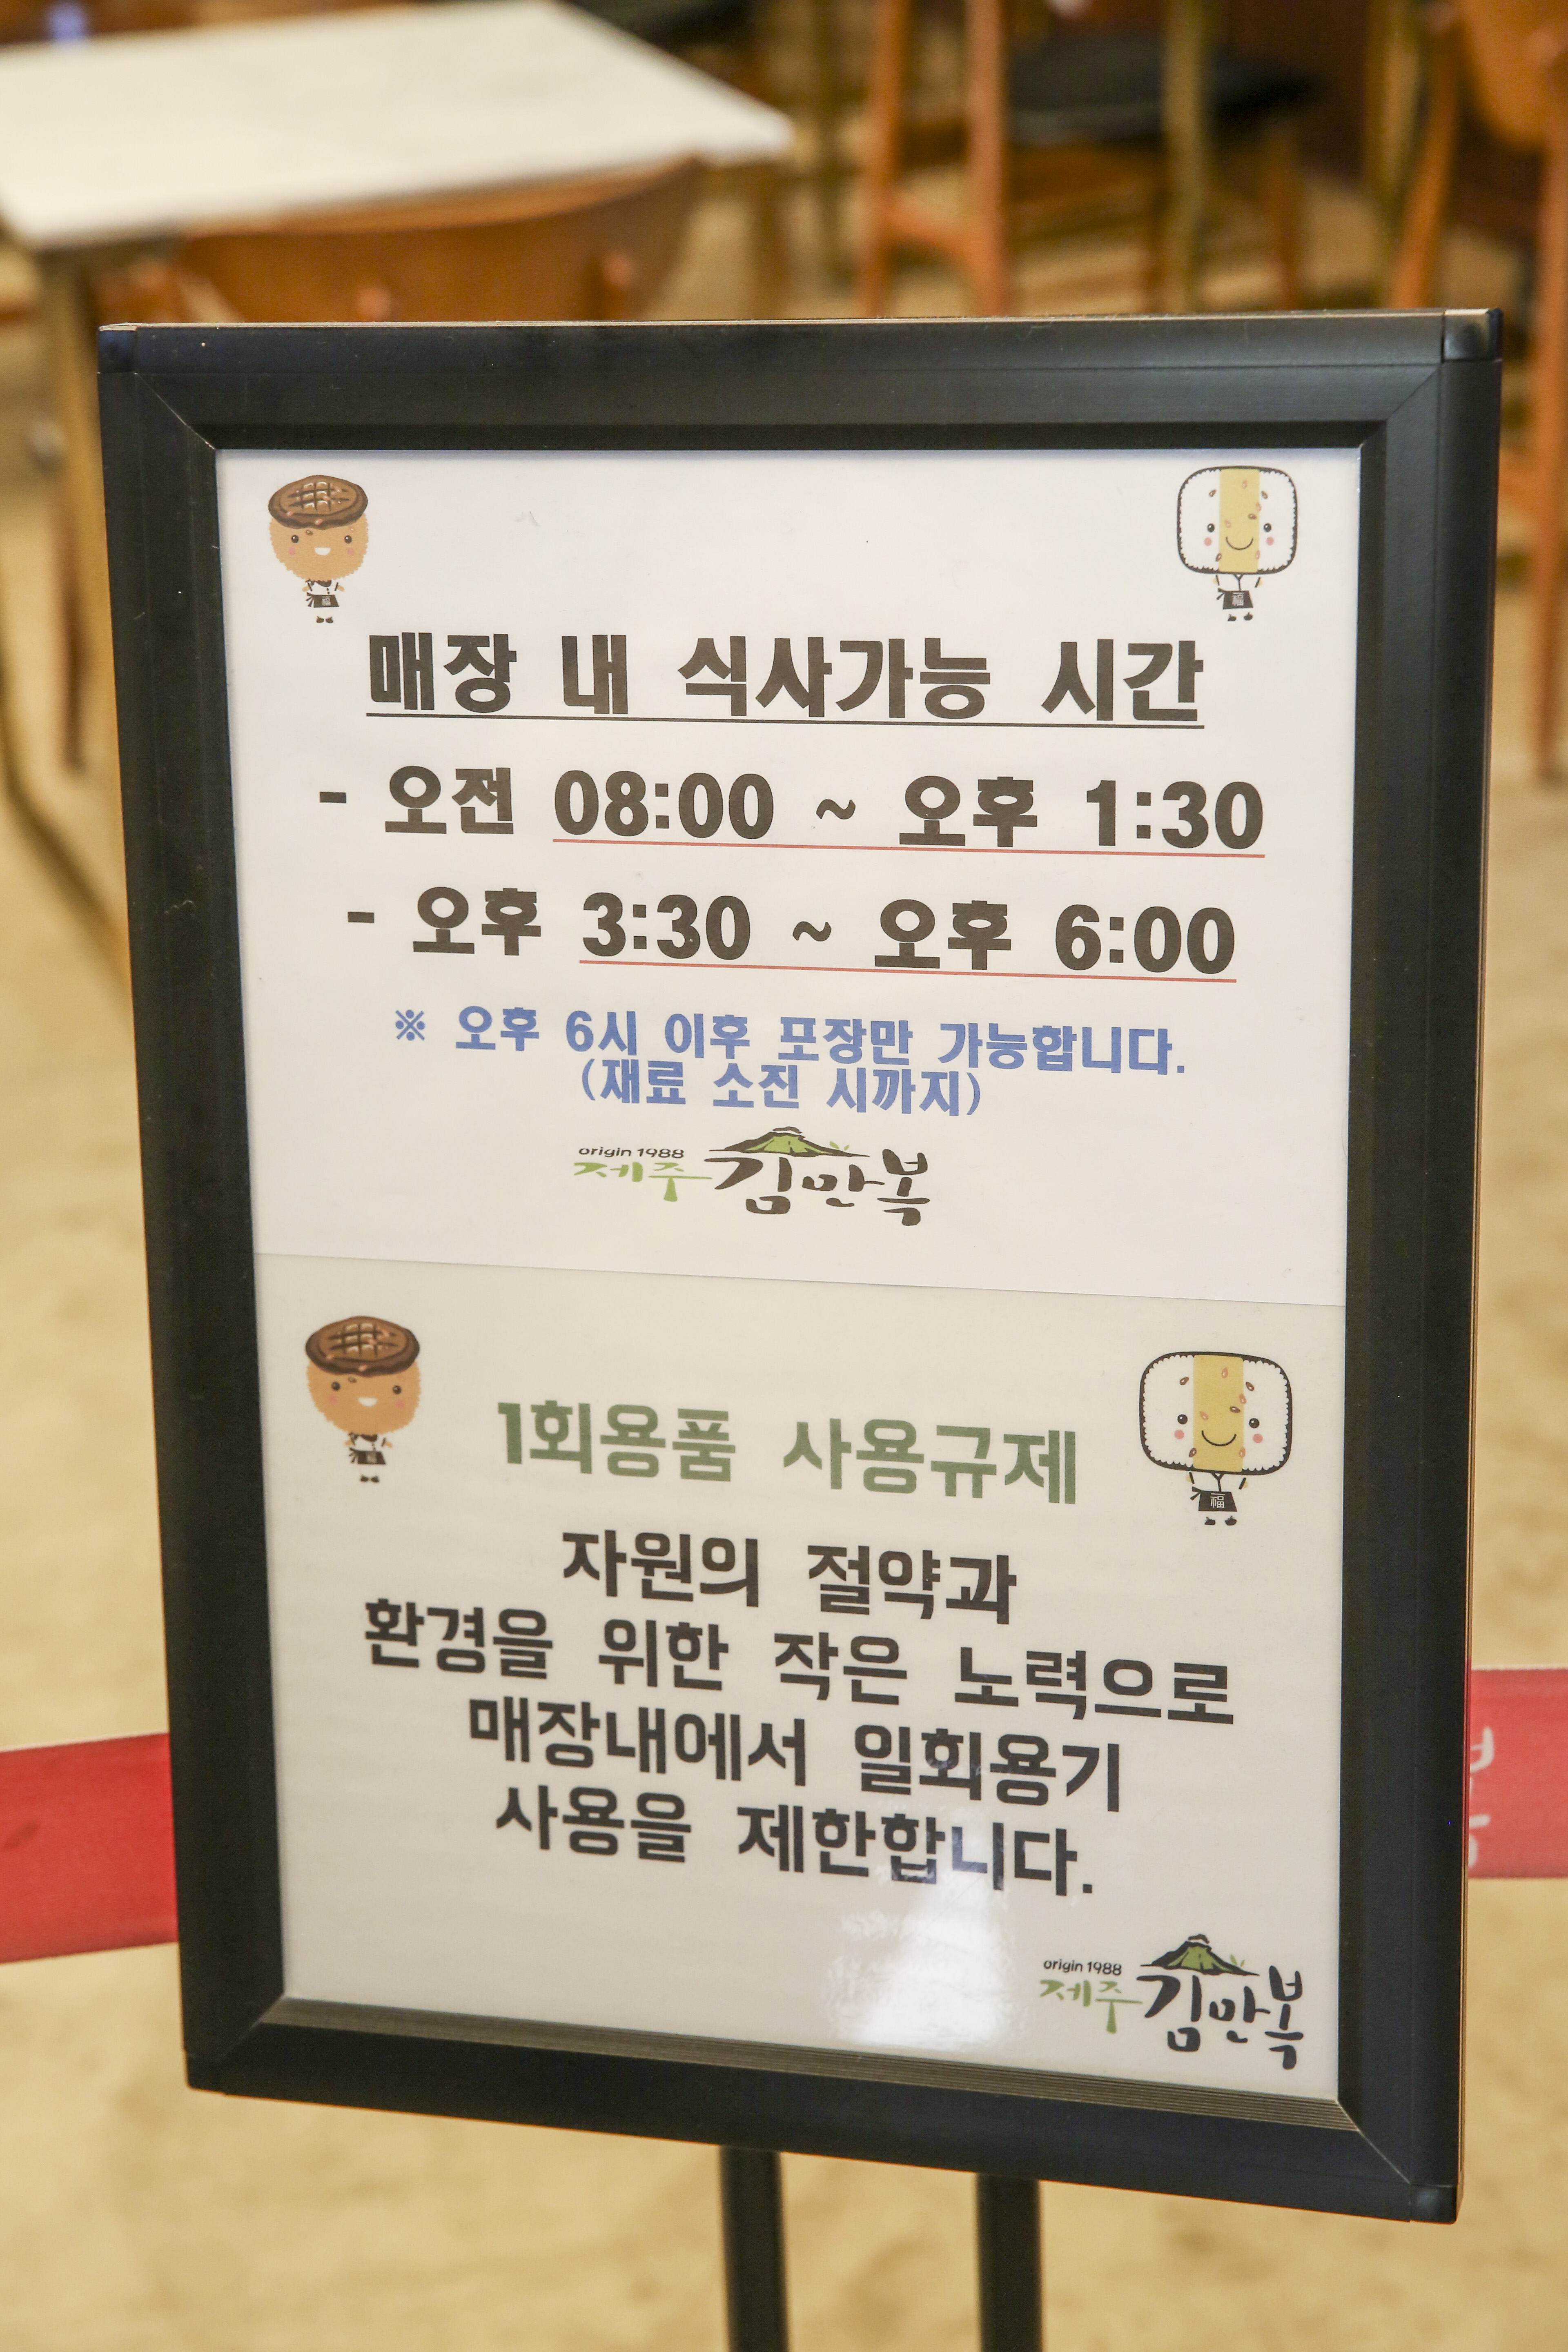 매장 내 식사가능 시간
- 오전 08:00 ~ 오후 1:30
- 오후 3:30 ~ 오후 6:00
※ 오후 6시 이후 포장만 가능합니다.
(재료 소진 시까지)
origin 1988
제주 김만복
1회용품 사용규제
福
자원의 절약과
환경을 위한 작은 노력으로
매장내에서 일회용기
사용을 제한합니다.
origin 1988
제주 김만복